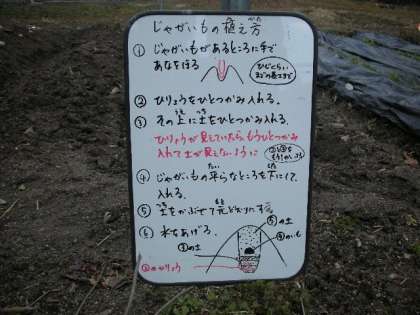 じゃがいもの植え方
かた
① じゃがいもがあるところに手で
あなをほる
ひじくらい
までの長さまで
② ひりょうをひとつかみ入れる.
③ その上に土をひとつかみ入れる.
ひりょうが見えていたら、もうひとつかみ
入れて土が見えないように
④ じゃがいもの平らなところを下にして、
入れる.
⑤ 土をかぶせて元どおりにする
⑥ 水をあげる.
⑤の土
④のいも
③の土
②のひりょう